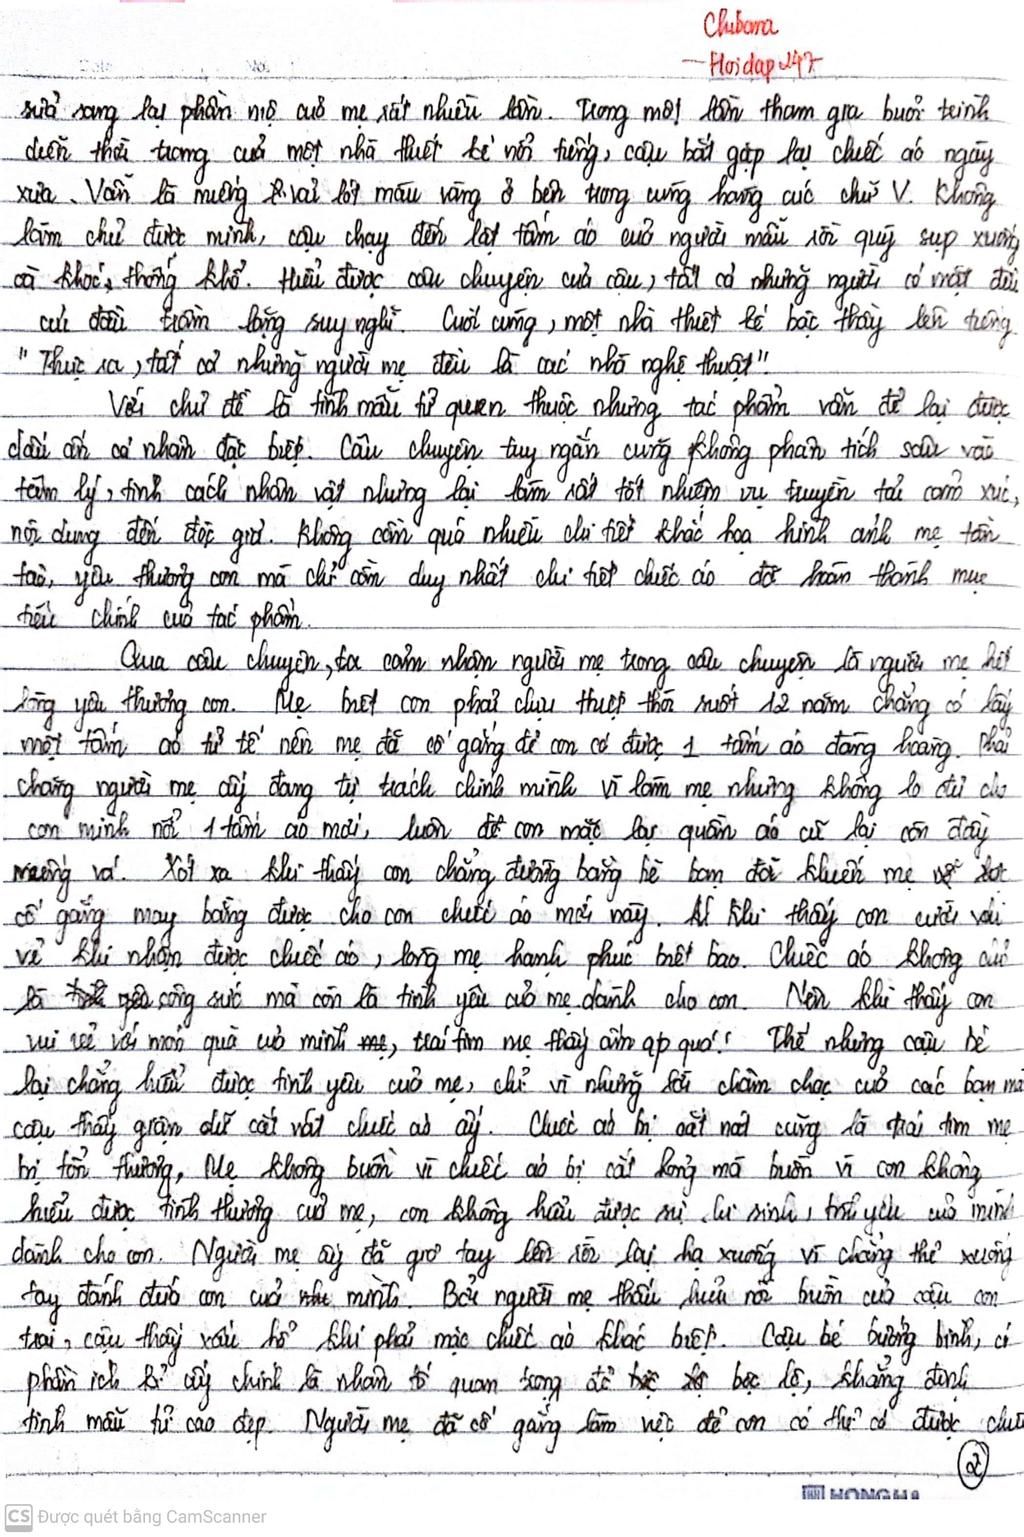 Chibara
- Hoidap247
sửa sang lại phần mộ của mẹ rất nhiều lần. Trong một lần tham gia buổi trình
diễn thời trang của một nhà thiết kế nổi tiếng, cậu bắt gặp lại chiếc áo ngày
xưa. Vẫn là miếng vải lót màu vàng ở bên trong cùng hàng cúc chữ V. Không
làm chủ được mình, cậu chạy đến lật tấm áo của người mẫu rồi quỳ sụp xuống
oà khóc, thống khổ. Hiểu được câu chuyện của cậu, tất cả những người có mặt đều
cúi đầu trầm lặng suy nghĩ. Cuối cùng, một nhà thiết kế bậc thầy lên tiếng
"Thực ra, tất cả những người mẹ đều là các nhà nghệ thuật"!
Với chủ đề là tình mẫu tử quen thuộc nhưng tác phẩm vẫn để lại được
dấu ấn cá nhân đặc biệt. Câu chuyện tuy ngắn cũng không phân tích sâu vào
tâm lý, tính cách nhân vật nhưng lại làm rất tốt nhiệm vụ truyền tải cảm xúc,
nội dung đến độc giả. Không cần quá nhiều chi tiết khắc hoạ hình ảnh mẹ tần
tảo, yêu thương con mà chỉ cần duy nhất chi tiết chiếc áo đã hoàn thành mục
tiêu chính của tác phẩm.
Qua câu chuyện, ta cảm nhận người mẹ trong câu chuyện là người mẹ hết
lòng yêu thương con. Mẹ biết con phải chịu thiệt thòi suốt 12 năm chẳng có lấy
một tấm áo tử tế nên mẹ đã cố gắng để con có được 1 tấm áo đàng hoàng. Phải
chăng người mẹ ấy đang tự trách chính mình vì làm mẹ nhưng không lo đủ cho
con mình nổi 1 tấm áo mới, luôn để con mặc lại quần áo cũ lại còn đầy
miếng vá. Xót xa khi thấy con chẳng đường bằng bè bạn đã khiến mẹ
cố gắng may bằng được cho con chiếc áo mới này. Khi thấy con cười vui
vẻ khi nhận được chiếc áo, lòng mẹ hạnh phúc biết bao. Chiếc áo không chỉ
là công sức mà còn là tình yêu của mẹ dành cho con. Nên khi thấy con
vui vẻ với món quà của mình, trái tim mẹ thấy ấm áp quá! Thế nhưng cậu bé
lại chẳng hiểu được tình yêu của mẹ, chỉ vì những lời châm chọc của các bạn mà
cậu thấy giận dữ cắt nát chiếc áo ấy. Chiếc áo bị cắt nát cũng là trái tim mẹ
bị tổn thương, Mẹ không buồn vì chiếc áo bị cắt hỏng mà buồn vì con không
hiểu được tình thương của mẹ, con không hiểu được sự hi sinh, tình yêu của mình
dành cho con. Người mẹ ấy đã giơ tay lên rồi lại hạ xuống vì chẳng thể xuống
tay đánh đứa con của mình. Bởi người mẹ thấu hiểu nỗi buồn của cậu con
trai, cậu thấy xấu hổ khi phải mặc chiếc áo khác biệt. Cậu bé bướng bỉnh, có
phần ích kỉ ấy chính là nhân tố quan trọng để bộc lộ, khẳng định
tình mẫu tử cao đẹp. Người mẹ đã cố gắng làm việc để con có thể có được
2
HONG HA
CS Được quét bằng CamScanner